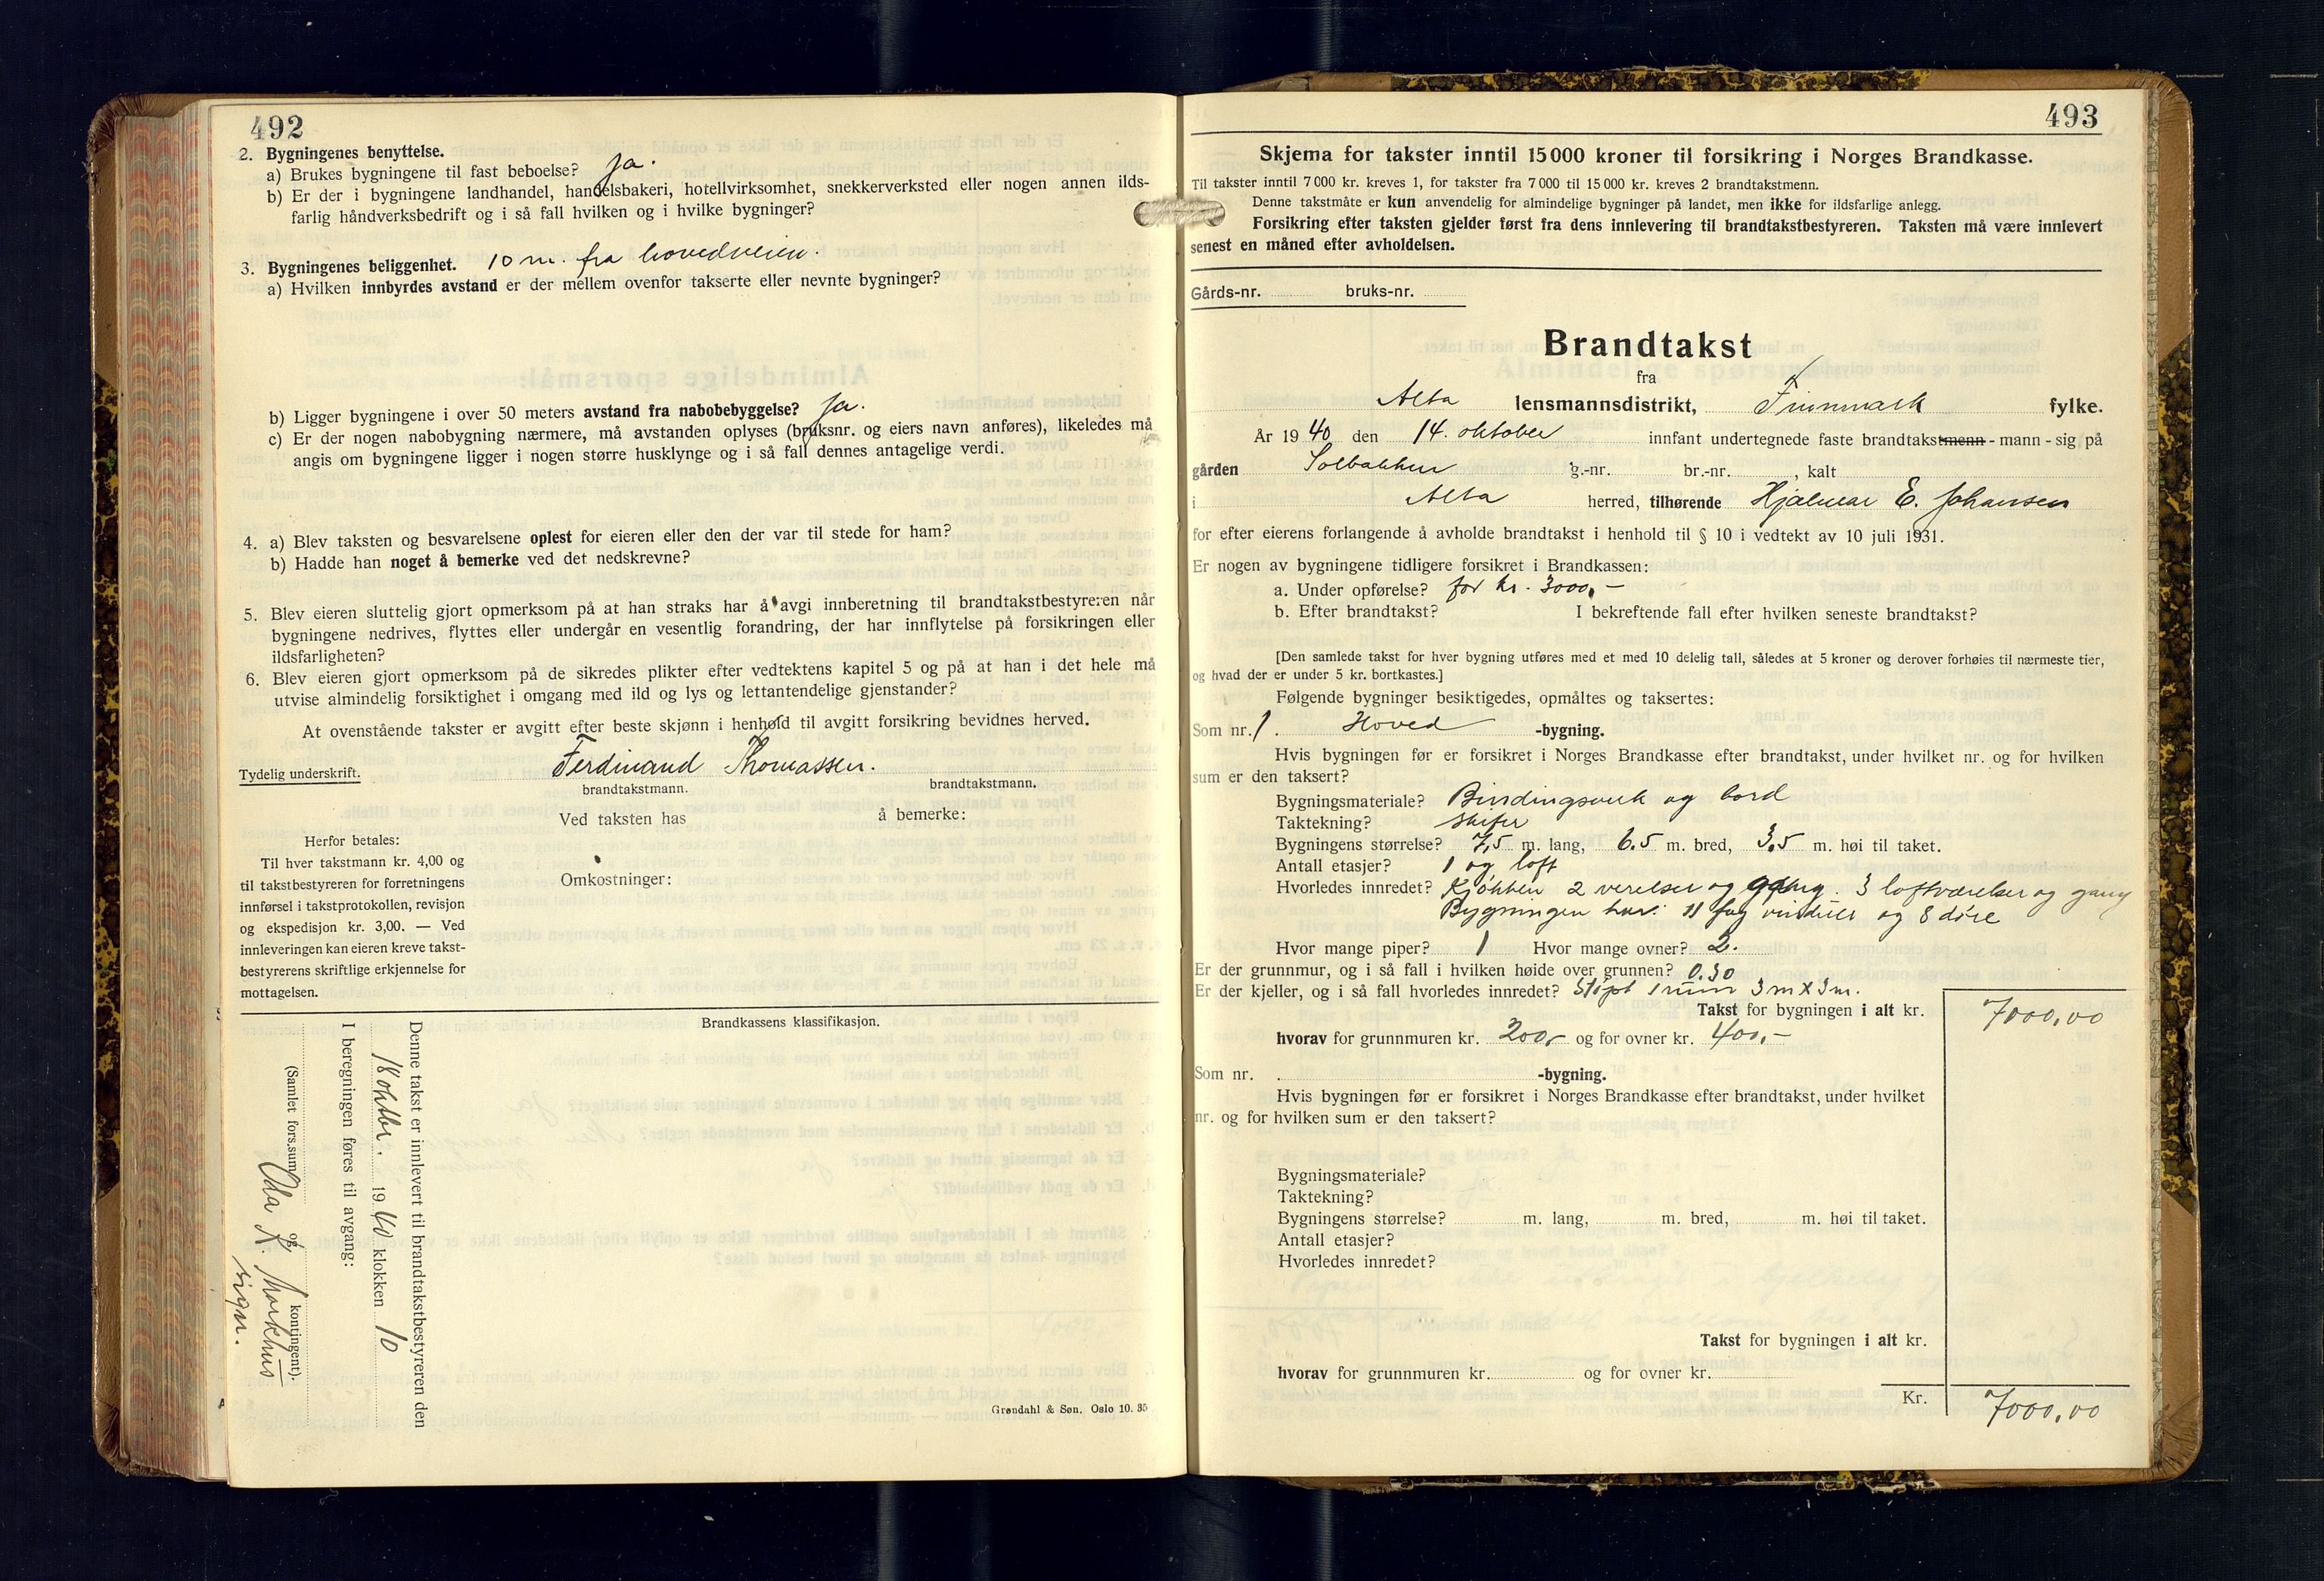 492
2. Bygningenes benyttelse.
a) Brukes bygningene til fast beboelse? Ja.
b) Er der i bygningene landhandel, handelsbakeri, hotellvirksomhet, snekkerverksted eller nogen annen ilds-
farlig håndverksbedrift og i så fall hvilken og i hvilke bygninger?
3. Bygningenes beliggenhet. 10 m. fra hovedveien.
a) Hvilken innbyrdes avstand er der mellem ovenfor takserte eller nevnte bygninger?
b) Ligger bygningene i over 50 meters avstand fra nabobebyggelse? Ja.
c) Er der nogen nabobygning nærmere, må avstanden oplyses (bruksnr. og eiers navn anføres), likeledes må
angis om bygningene ligger i nogen større husklynge og i så fall dennes antagelige verdi.
4. a) Blev taksten og besvarelsene oplest for eieren eller den der var til stede for ham?
b) Hadde han noget å bemerke ved det nedskrevne?
5. Blev eieren sluttelig gjort opmerksom på at han straks har å avgi innberetning til brandtakstbestyreren når
bygningene nedrives, flyttes eller undergår en vesentlig forandring, der har innflytelse på forsikringen eller
ildsfarligheten?
6. Blev eieren gjort opmerksom på de sikredes plikter efter vedtektens kapitel 5 og på at han i det hele må
utvise almindelig forsiktighet i omgang med ild og lys og lettantendelige gjenstander?
At ovenstående takster er avgitt efter beste skjønn i henhold til avgitt forsikring bevidnes herved.
Tydelig underskrift. Ferdinand Thomassen.
brandtakstmann. brandtakstmann.
Ved taksten has å bemerke:
Herfor betales:
Til hver takstmann kr. 4,00 og
til takstbestyreren for forretningens
innførsel i takstprotokollen, revisjon
og ekspedisjon kr. 3,00. — Ved
innleveringen kan eieren kreve takst-
bestyrerens skriftlige erkjennelse for
mottagelsen.
Omkostninger:
Brandkassens klassifikasjon.
Denne takst er innlevert til brandtakstbestyreren den
18 oktbr. 1940 klokken 10
I beregningen føres til avgang:
(Samlet fors.sum og kontingent).
Oda K. Markhus
sign.
Grøndahl & Søn. Oslo 10. 35
493
Skjema for takster inntil 15000 kroner til forsikring i Norges Brandkasse.
Til takster inntil 7000 kr. kreves 1, for takster fra 7000 til 15000 kr. kreves 2 brandtakstmenn.
Denne takstmåte er kun anvendelig for almindelige bygninger på landet, men ikke for ildsfarlige anlegg.
Forsikring efter taksten gjelder først fra dens innlevering til brandtakstbestyreren. Taksten må være innlevert
senest en måned efter avholdelsen.
Gårds-nr. bruks-nr.
Brandtakst
fra
Alta lensmannsdistrikt, Finnmark fylke.
År 1940 den 14. oktober innfant undertegnede faste brandtakstmenn - mann - sig på
gården Solbakken g.-nr. br.-nr. , kalt
i Alta herred, tilhørende Hjalmar E. Johansen
for efter eierens forlangende å avholde brandtakst i henhold til § 10 i vedtekt av 10 juli 1931.
Er nogen av bygningene tidligere forsikret i Brandkassen:
a. Under opførelse? for kr. 3000,-
b. Efter brandtakst? I bekreftende fall efter hvilken seneste brandtakst?
[Den samlede takst for hver bygning utføres med et med 10 delelig tall, således at 5 kroner og derover forhøies til nærmeste tier,
og hvad der er under 5 kr. bortkastes.]
Følgende bygninger besiktigedes, opmåltes og taksertes:
Som nr. 1. Hoved -bygning.
Hvis bygningen før er forsikret i Norges Brandkasse efter brandtakst, under hvilket nr. og for hvilken
sum er den taksert?
Bygningsmateriale? Bindingsverk og bord
Taktekning? skifer
Bygningens størrelse? 7,5 m. lang, 6.5 m. bred, 3,5 m. høi til taket.
Antall etasjer? 1 og loft
Hvorledes innredet? Kjøkken 2 verelser og gang. 3 loftværelser og gang
Bygningen har 11 fag vinduer og 8 døre
Hvor mange piper? 1 Hvor mange ovner? 2.
Er der grunnmur, og i så fall i hvilken høide over grunnen? 0.30
Er der kjeller, og i så fall hvorledes innredet? Støpt 1 rum 3 m x 3 m.
Takst for bygningen i alt kr. 7000,00
hvorav for grunnmuren kr. 200,- og for ovner kr. 400,-
Som nr. -bygning.
Hvis bygningen før er forsikret i Norges Brandkasse efter brandtakst, under hvilket
nr. og for hvilken sum er den taksert?
Bygningsmateriale?
Taktekning?
Bygningens størrelse? m. lang, m. bred, m. høi til taket.
Antall etasjer?
Hvorledes innredet?
Takst for bygningen i alt kr.
hvorav for grunnmuren kr. og for ovner kr.
Kr. 7000,00